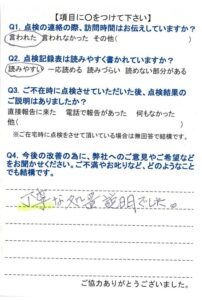 【項目に〇をつけて下さい】
Q1. 点検の連絡の際、訪問時間はお伝えしていますか?
言われた 言われなかった その他( )
Q2. 点検記録表は読みやすく書かれていますか?
読みやすい 一応読める 読みづらい 読めない部分がある
Q3. ご不在時に点検させていただいた後、点検結果の
ご説明はありましたか?
直接報告に来た 電話で報告があった 何もなかった
他( )
※ご在宅時に点検をさせて頂いている場合は無回答で結構です。
Q4. 今後の改善の為に、弊社へのご意見やご希望など
をお聞かせください。ご不満やお叱りなど、どのようなこと
でも結構です。
丁寧な処置説明でした。
ご協力ありがとうございました。